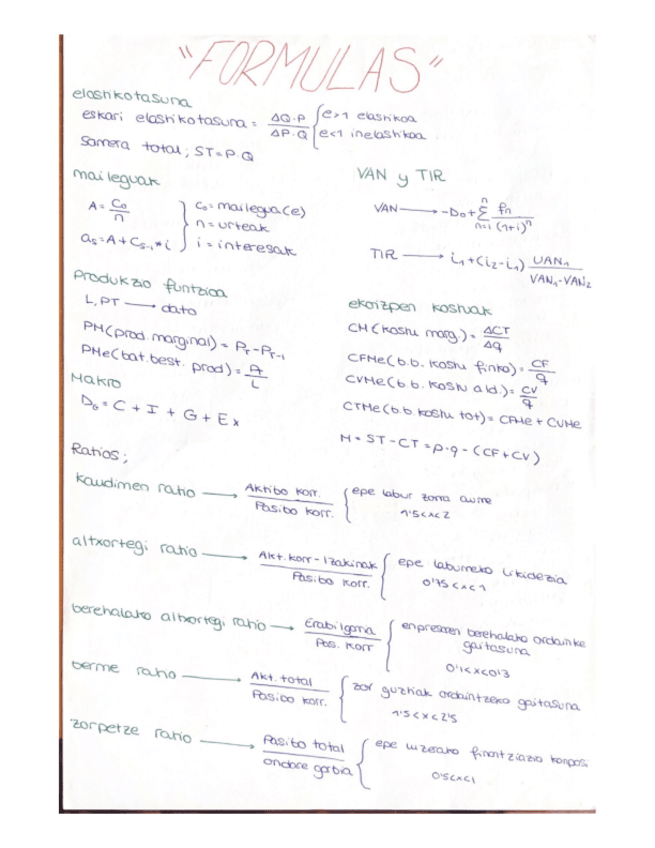 "FORMULAS"
elastikotasuna
eskari elastikotasuna = ΔQ·P / ΔP·Q { e>1 elastikoa
e<1 inelastikoa
Sarrera total; ST=P·Q
maileguak
A = Co / n
as = A + Cs-1 * i
Co = mailegua(e)
n = urteak
i = interesak
VAN y TIR
VAN → -Do + Σ n n=1 fn / (1+i)^n
TIR → i1 + (i2 - i1) VAN1 / VAN1 - VAN2
Produkzio funtzioa
L, PT → dato
PM (prod. marginal) = PT - PT-1
PMe (bat. best. prod) = PT / L
Makro
DG = C + I + G + Ex
ekoizpen kostuak
CM (kostu marg.) = ΔCT / Δq
CFMe (b.b. kostu finko) = CF / q
CVMe (b.b. kostu ald.) = CV / q
CTMe (b.b. kostu tot) = CFMe + CVMe
M = ST - CT = p·q - (CF + CV)
Ratios;
Kaudimen ratio → Aktibo korr. / Pasibo korr. { epe labur zorra aurre
1'5<x<2
altxortegi ratio → Akt. korr - Izakinak / Pasibo korr. { epe laburreko likidezia
0'75<x<1
berehalako altxortegi ratio → Erabilgarria / Pas. korr { enpresaren berehalako ordainke
gaitasuna
0'1<x<0'3
berme ratio → Akt. total / Pasibo korr. { zor guztiak ordaintzeko gaitasuna
1'5<x<2'5
zorpetze ratio → Pasibo total / ondare garbia { epe luzerako finantziazio konposi
0'5<x<1